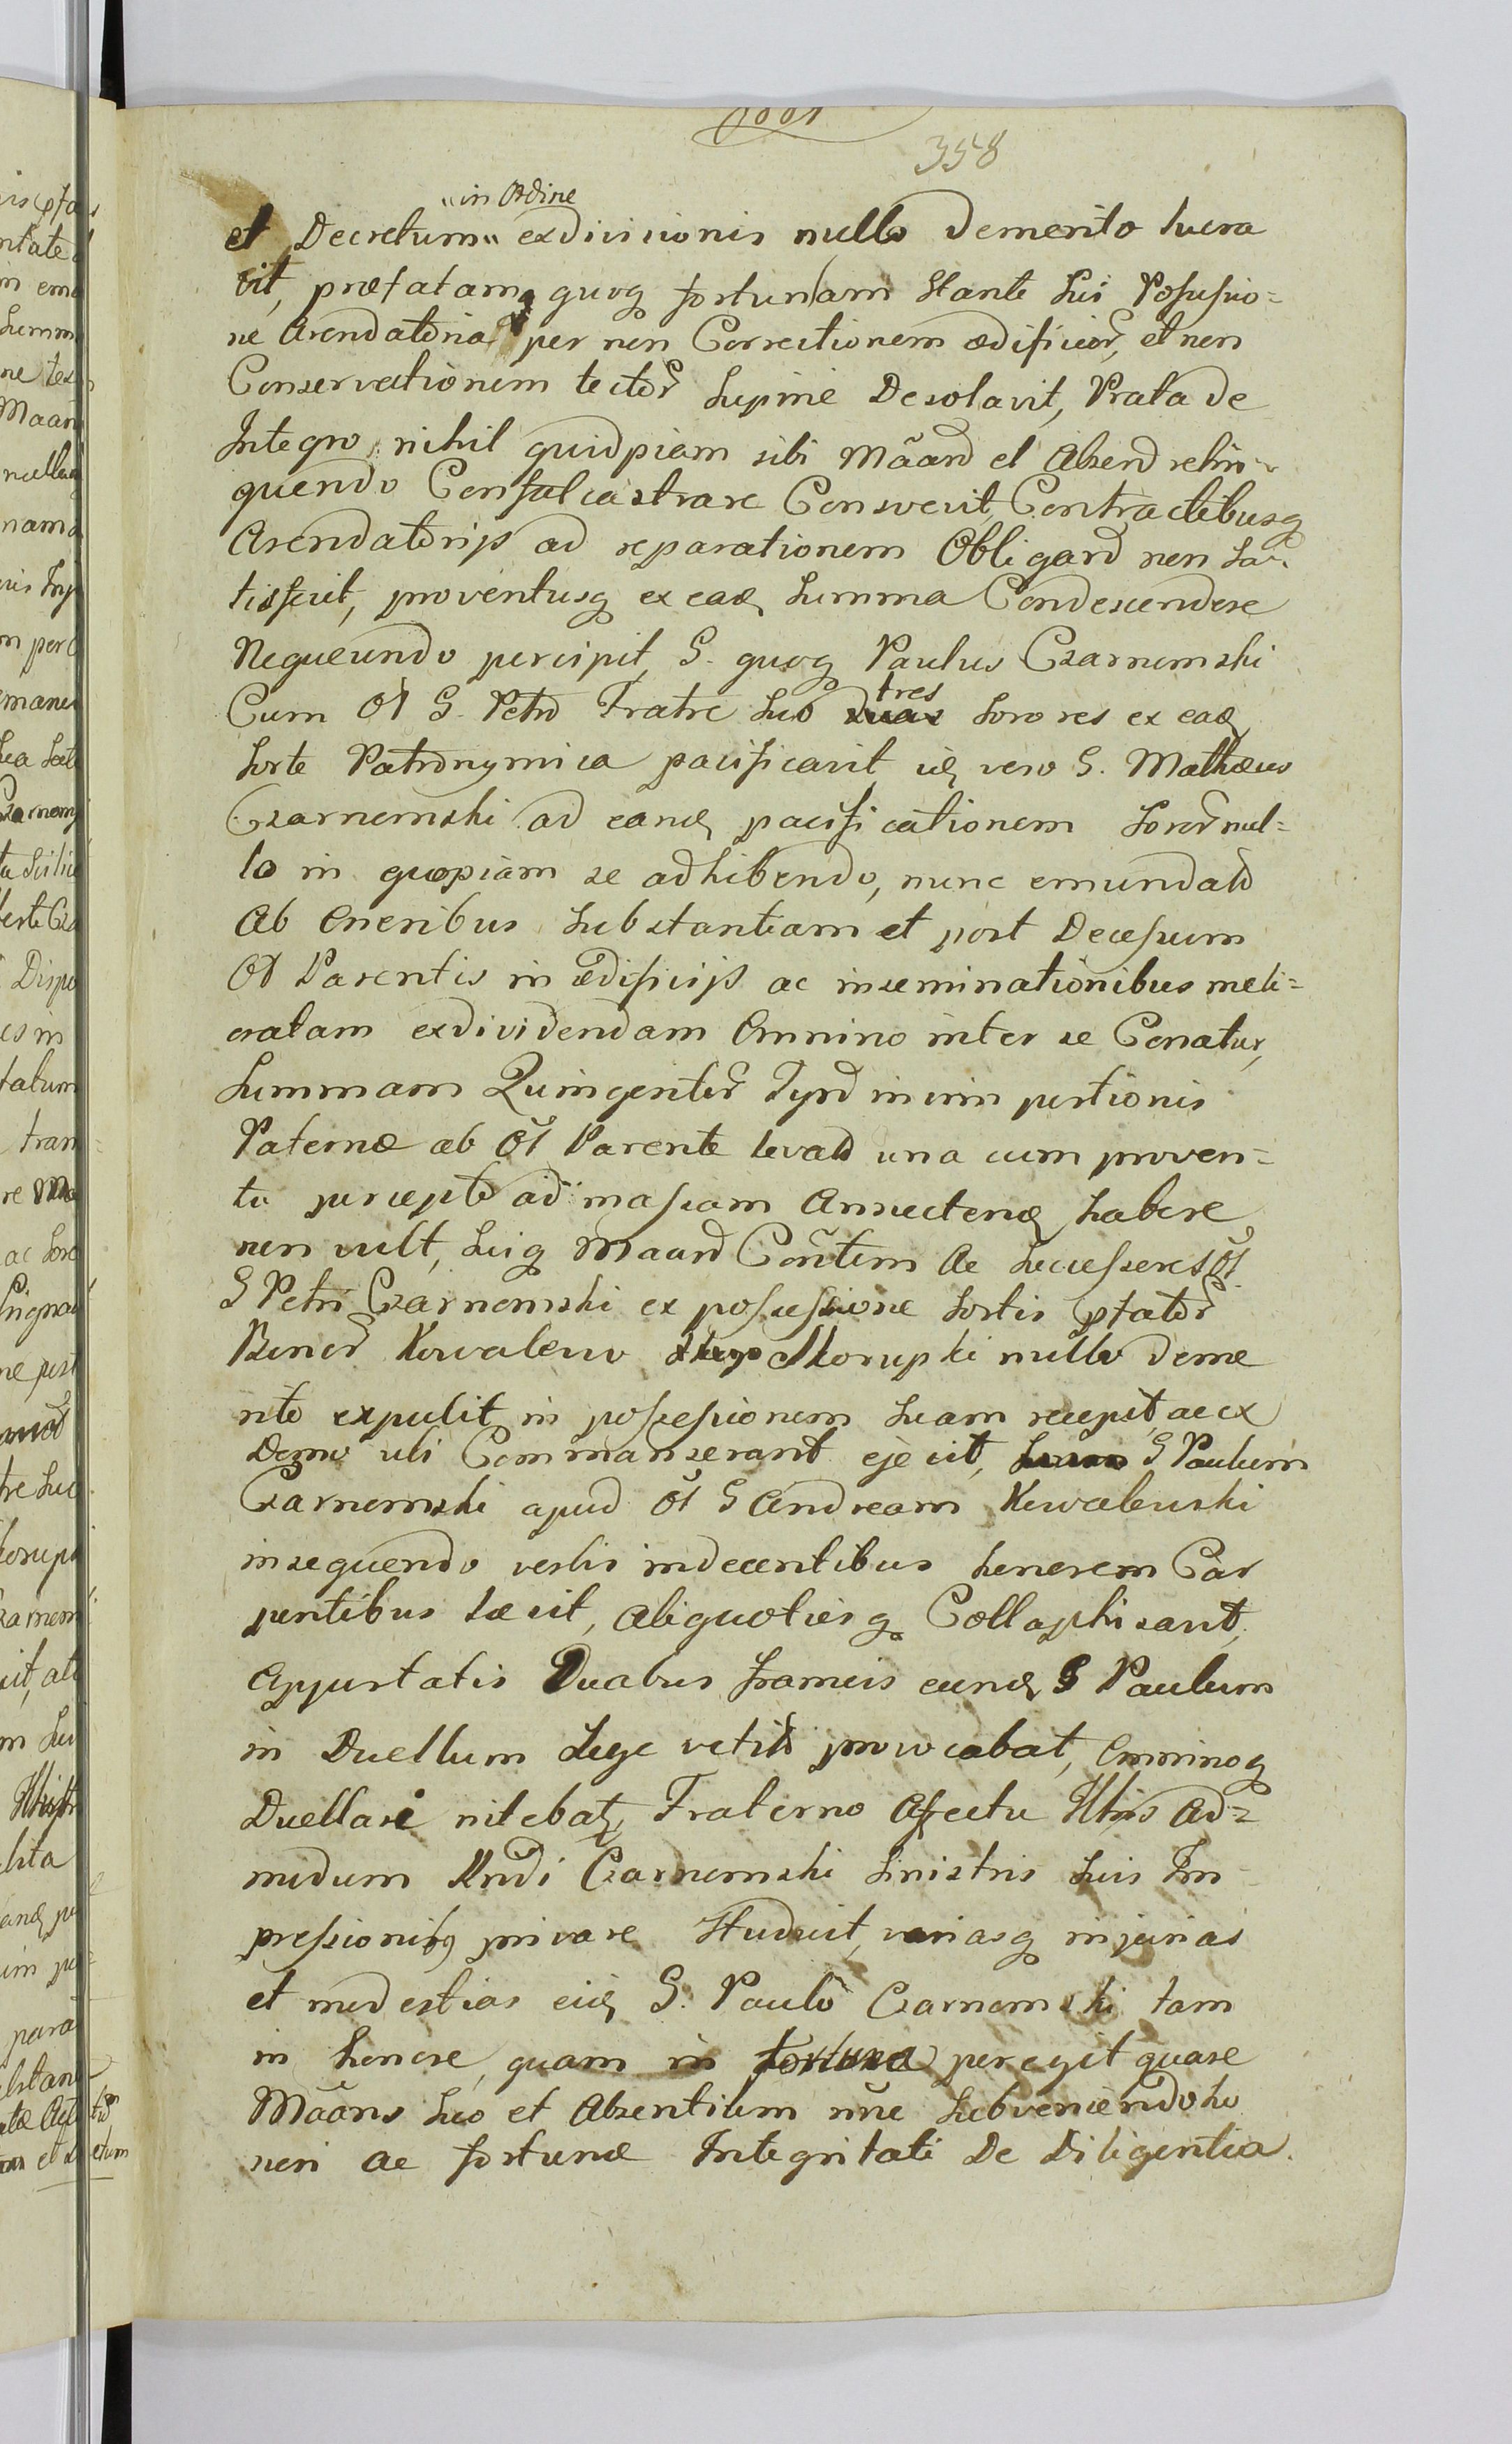 358
"in Ordine
et Decretum" exdivisionis nullo demerito lucra
vit, præfatamq quoq fortunam stante sui Possessio=
ne Arendatoria per non Correctionem ædificior, et non
Conservationem tector supine Desolavit, Prata de
Integro nihil quidpiam sibi Mãand et Absend relin-
quendo Confalcastrare Consvevit, Contractibusq
Arendatorijs ad reparationem Obligand non sa-
tisfecit, proventusq ex ead summa Condescendere
Nequeundo percipit, G. quoq Paulus Czarnomski
tres
Cum Ol G. Petro Fratre suo duas sorores ex ead
sorte Patronymica pacificavit, id vero G. Mathæus
Czarnomski ad eand pacificationem soror nul=
lo in quopiam se adhibendo, nunc emundatã
Ab Oneribus substantiam et post Decessum
Ol Parentis in ædificijs ac inseminationibus meli=
oratam exdividendam Omnino inter se Conatur,
Summam Quingentor Tynf in vim portionis
Paternæ ab Ol Parente levatã una cum proven=
tu percepto ad massam Annectend habere
non vult, suiq Maand Contem Ac Successores Ol
G Petri Czarnomski ex possessione sortis ptator
Bonor Kowalewo Skorupki nullo deme
rito expulit, in possessionem suam recepit, ac ex
Domo ubi Commanserant ejecit, G Paulum
Czarnomski apud Ol G Andream Kowalewski
insequendo verbis indecentibus honorem Car
pentibus læsit, aliquotiesq Collaphisavit,
Apportatis Duabus frameis eund G Paulum
in Duellum Lege vetitũ provocabat, Omninoq
Duellare nitebat, Fraterno Affectu Illtris Ad=
modum Rndi Czarnomski sinistris suis Im
pressionibq privare studuit, variasq injurias
et modestias eid G. Paulo Czarnomski tam
in honore, quam in fortuna peregit quare
Mãans suo et Absentium nñe Subveniendo ho
nori ac fortunæ Integritati De Diligentia.